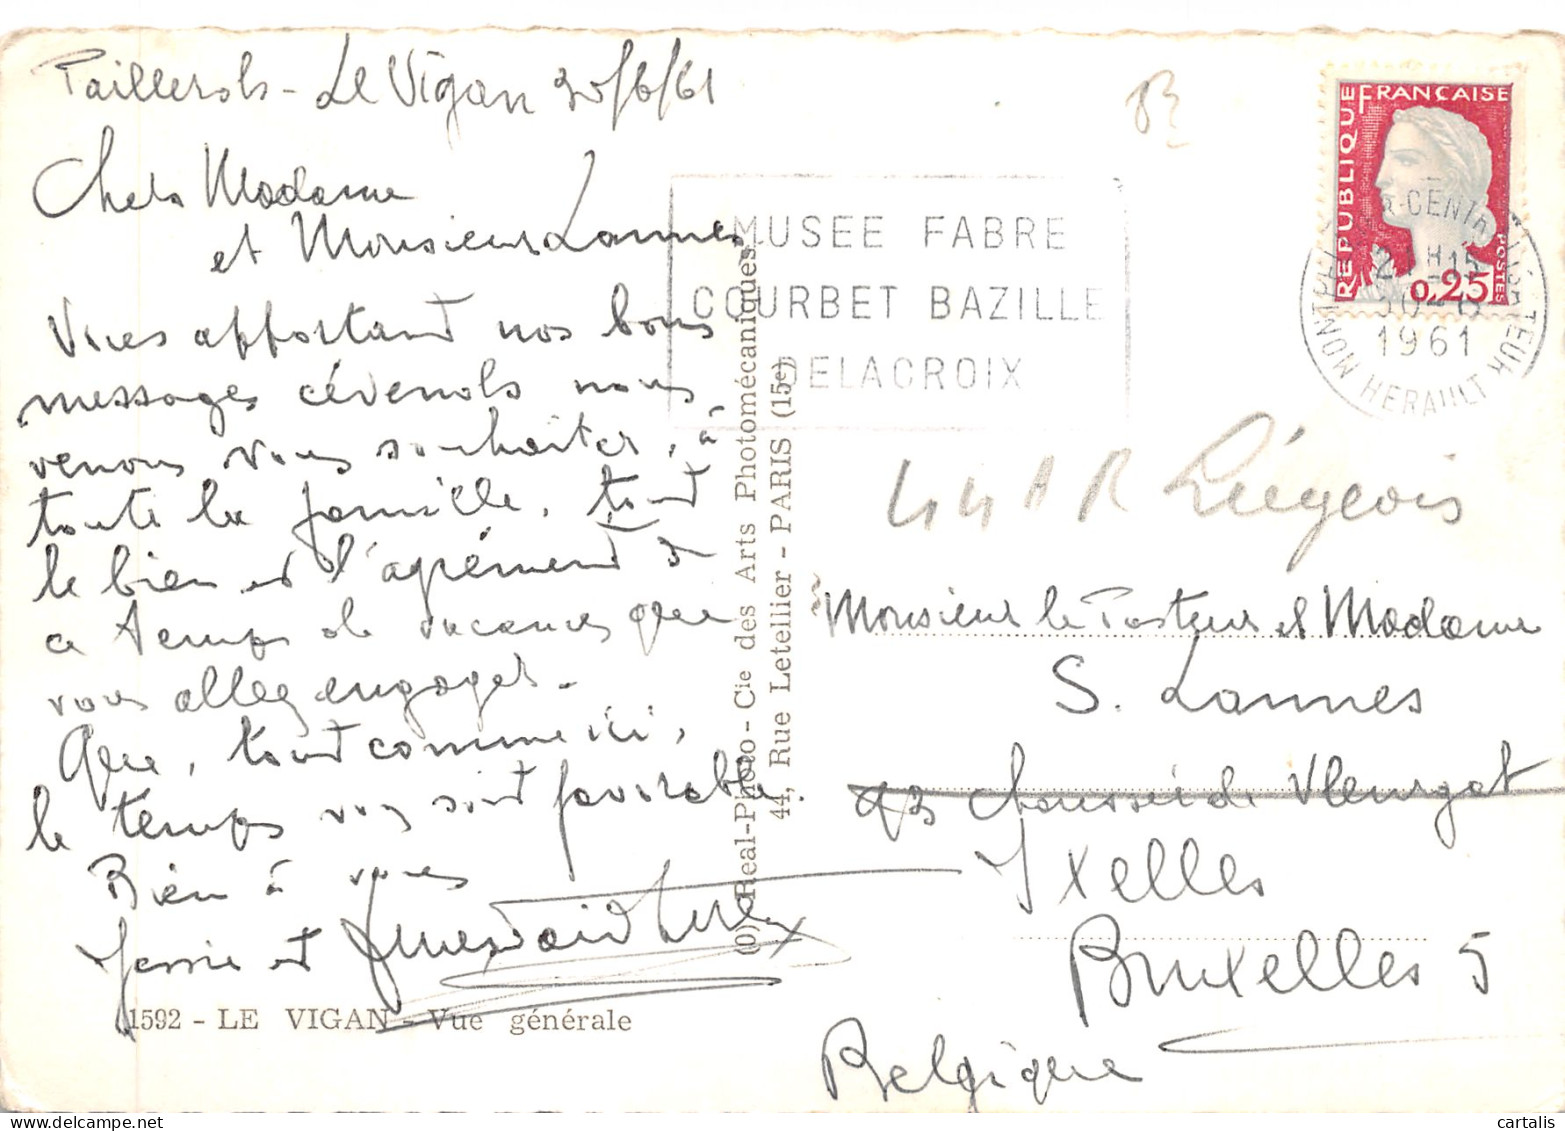 Taillerols - Le Vigan 30/6/61
Chers Madame
et Monsieur Lannes
Vous apportant nos bons
messages cévenols nous
venons vous souhaiter, à
toute la famille, tout
le bien et l'agrément de
ce temps de vacances que
vous allez engager -
Que, tout comme ici,
le temps vous soit favorable.
Bien à vous
et
1592 - LE VIGAN - Vue générale
(0) Real-Photo - Cie des Arts Photomécaniques
44, Rue Letellier - PARIS (15e)
83
MUSEE FABRE
COURBET BAZILLE
DELACROIX
REPUBLIQUE FRANÇAISE
POSTES
0,25
1961
HERAULT
44 A R Liégeois
Monsieur le Pasteur et Madame
S. Lannes
Chaussée de Vleurgat
Ixelles
Bruxelles 5
Belgique
cartalis
www.delcampe.net